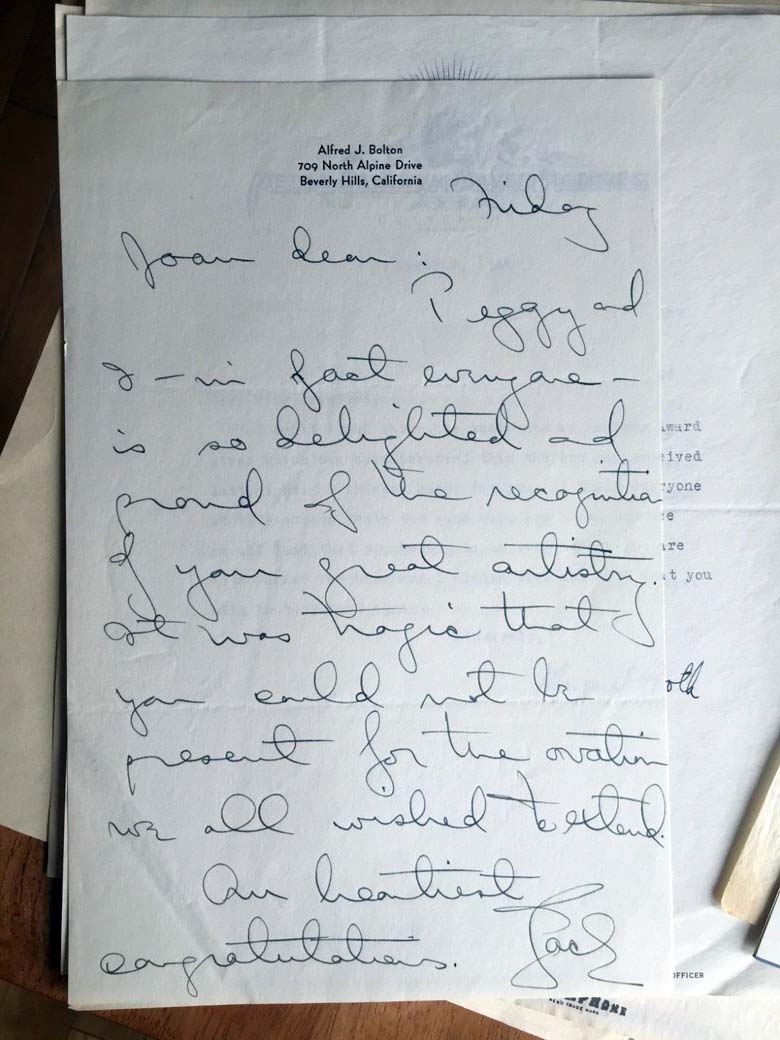 Alfred J. Bolton
709 North Alpine Drive
Beverly Hills, California
Friday
Joan dear:
Peggy and
I – in fact everyone –
is so delighted and
proud of the recognition
of your great artistry.
It was tragic that
you could not be
present for the ovation
we all wished to extend.
Our heartiest
congratulations. Jack
ward
ived
yone
e
are
t you
oth
OFFICER